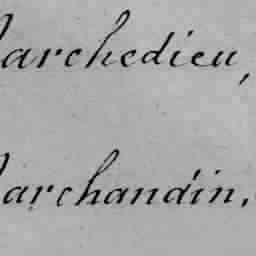 Marchedieu,
Marchandin,